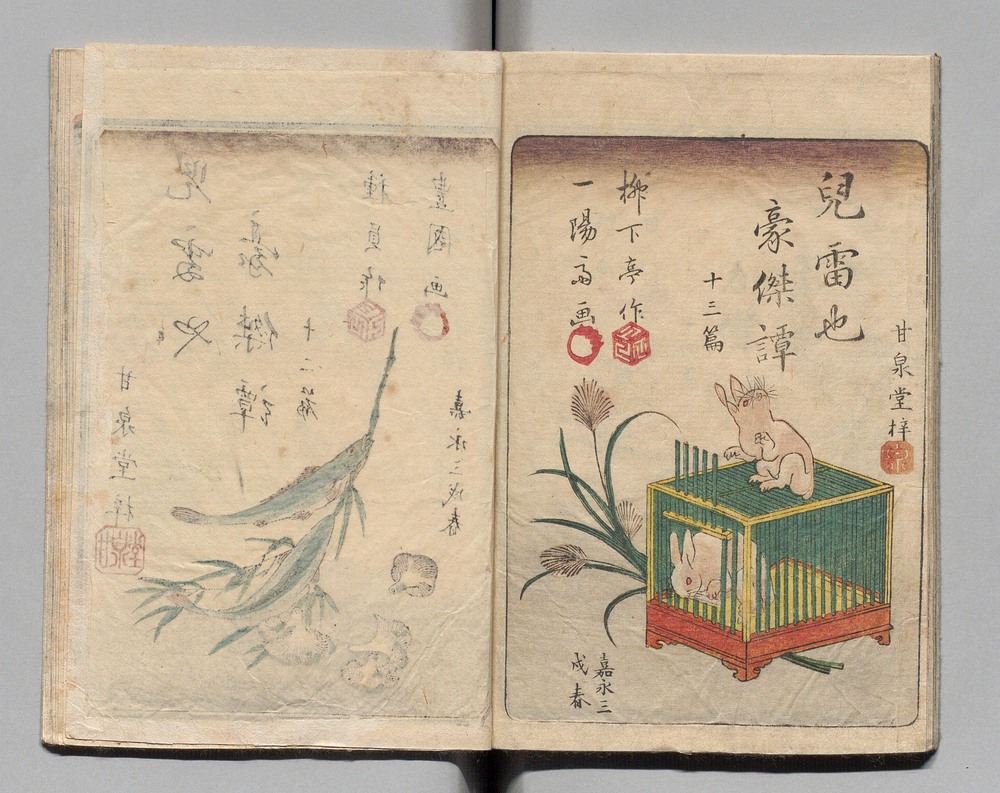 甘泉堂梓
兒雷也
豪傑譚
十三篇
柳下亭作
一陽斎画
嘉永三
戌春
甘泉堂梓
兒雷也
豪傑譚
十二篇
種員作
豊國画
嘉永三戌春